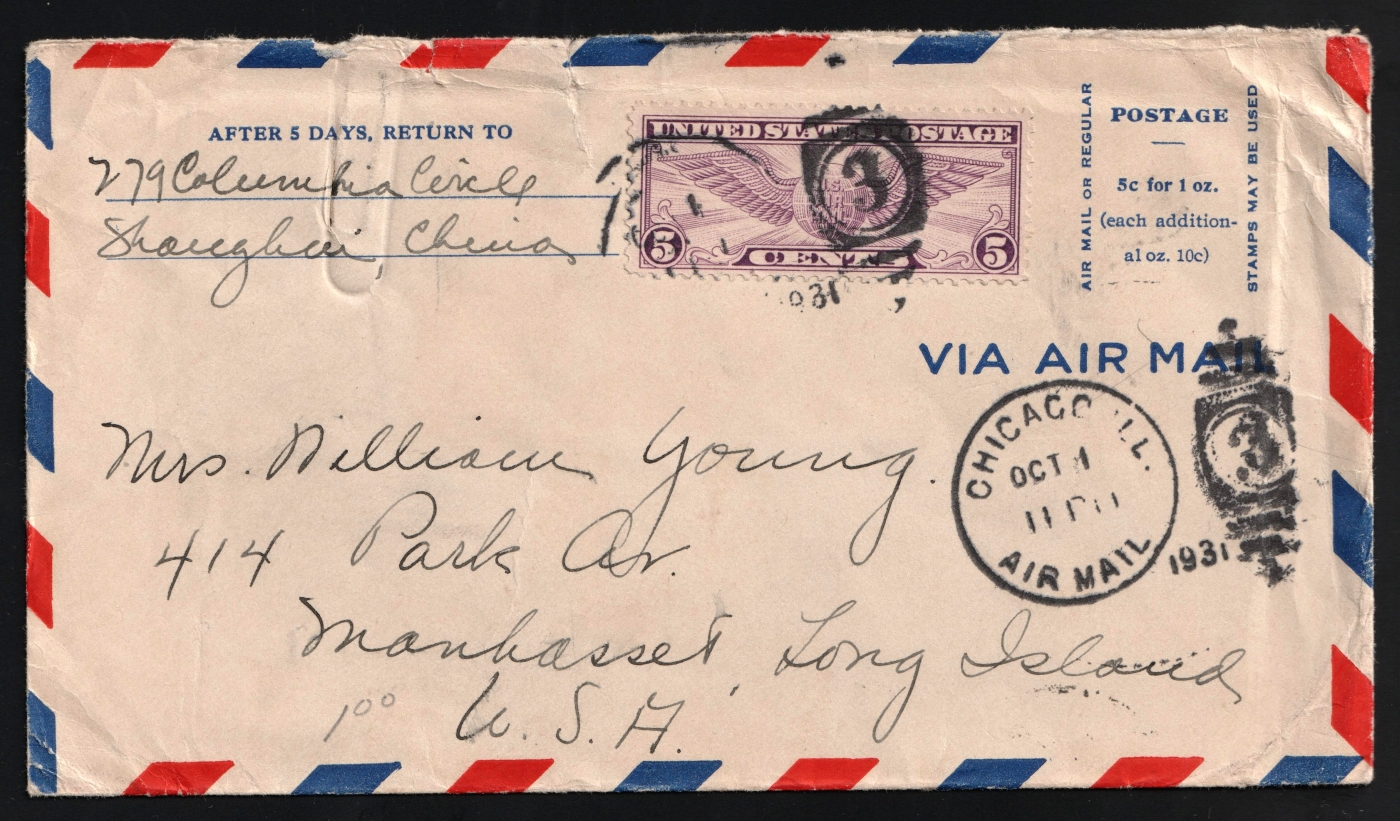 AFTER 5 DAYS, RETURN TO
279 Columbia Circle
Shanghai, China
UNITED STATES POSTAGE
5 CENTS 5
3
1931
AIR MAIL OR REGULAR
POSTAGE
5c for 1 oz.
(each addition-
al oz. 10c)
STAMPS MAY BE USED
VIA AIR MAIL
CHICAGO ILL.
OCT 1
AIR MAIL
1931
3
Mrs. William Young.
414 Park Av.
Manhasset, Long Island
U. S. A.
1 00